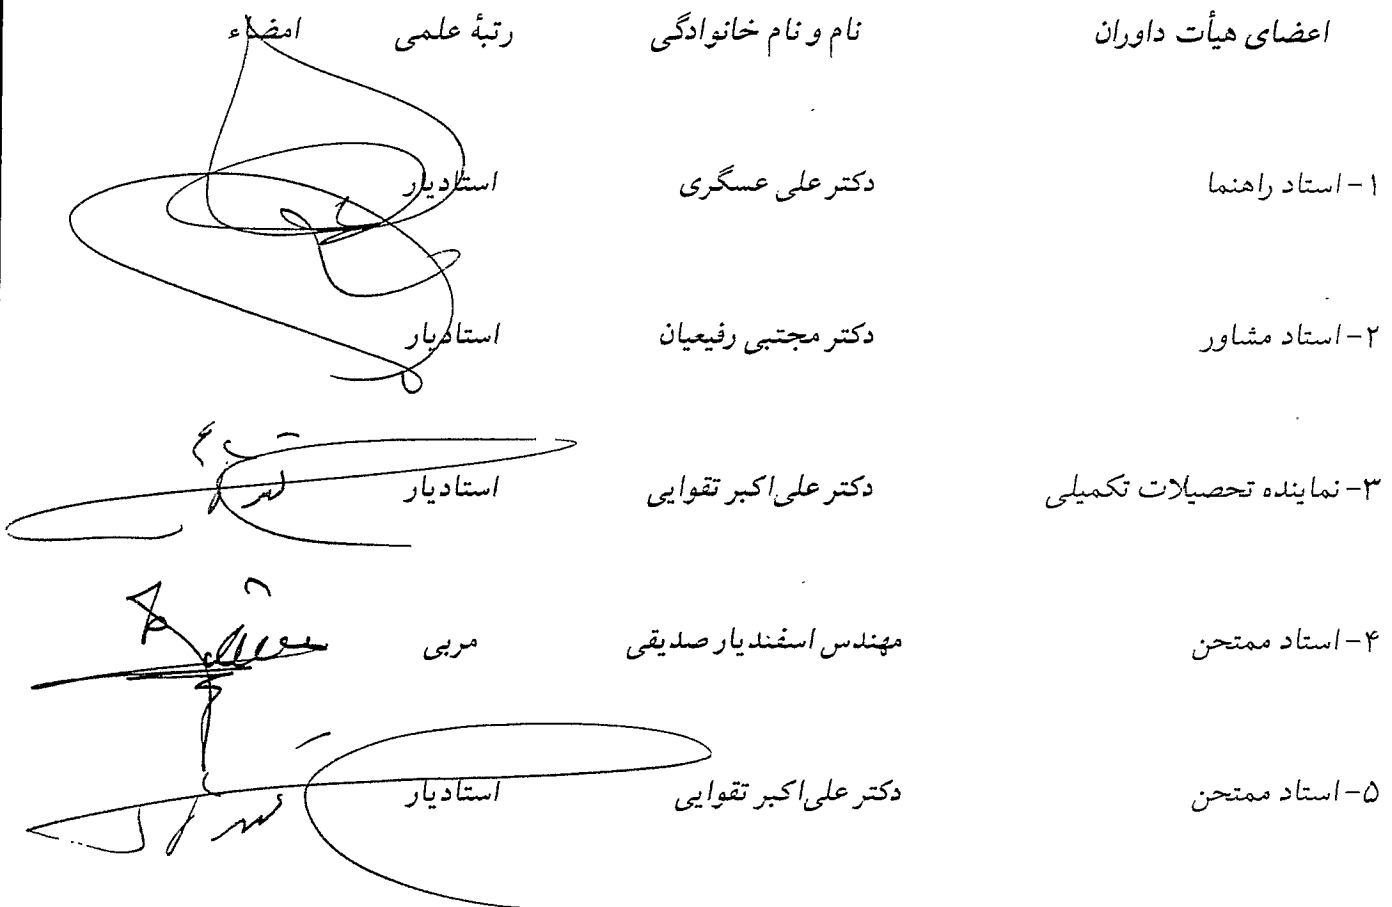 اعضای هیأت داوران نام و نام خانوادگی رتبهٔ علمی امضاء
۱- استاد راهنما دکتر علی عسگری استادیار
۲- استاد مشاور دکتر مجتبی رفیعیان استادیار
۳- نماینده تحصیلات تکمیلی دکتر علی‌اکبر تقوایی استادیار
۴- استاد ممتحن مهندس اسفندیار صدیقی مربی
۵- استاد ممتحن دکتر علی‌اکبر تقوایی استادیار